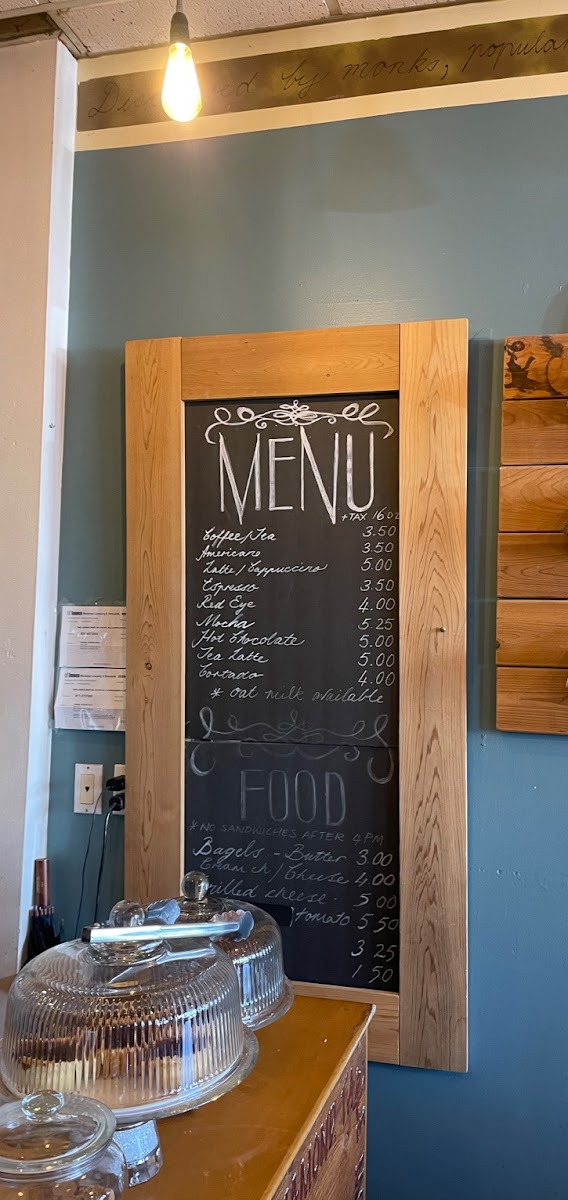 by monks, popular
MENU
+TAX 16oz
Coffee/Tea 3.50
Americano 3.50
Latte/Cappuccino 5.00
Espresso 3.50
Red Eye 4.00
Mocha 5.25
Hot Chocolate 5.00
Tea Latte 5.00
Cortado 4.00
* oat milk available
FOOD
*NO SANDWICHES AFTER 4PM
Bagels - Butter 3.00
Cream ch/Cheese 4.00
Grilled cheese - 5 00
tomato 5 50
3 25
1 50
TORONTO
TORONTO